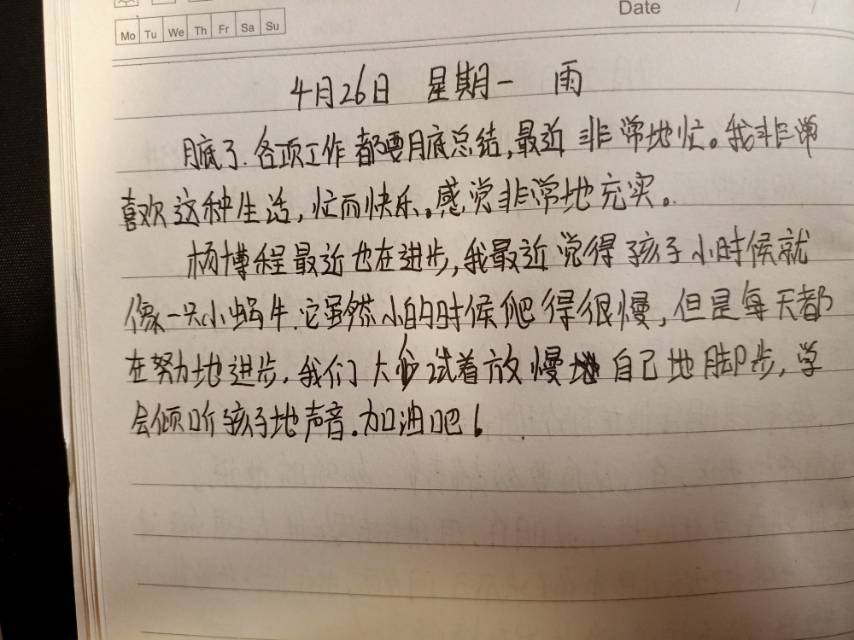 Date / /
Mo Tu We Th Fr Sa Su
4月26日 星期一 雨
月底了.各项工作都要月底总结,最近非常地忙。我非常
喜欢这种生活,忙而快乐。感觉非常地充实。
杨博程最近也在进步,我最近觉得孩子小时候就
像一只小蜗牛.它虽然小的时候爬得很慢,但是每天都
在努力地进步.我们大试着放慢地自己地脚步,学
会倾听孩子地声音.加油吧!